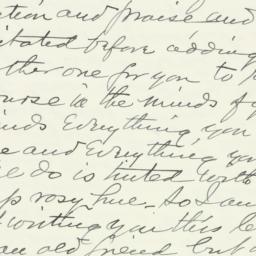 tion and praise and
itated before adding
ther one for you to
ourse in the minds of
inds Everything, you
e and Everything you
e do is tinted with
p rosy hue - So I am
writing you this le
an old friend but